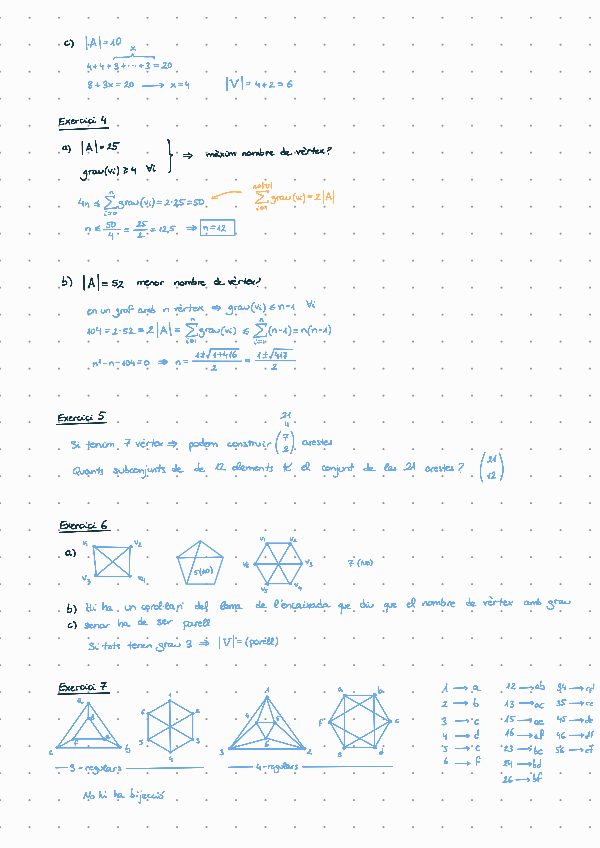 c) |A|=10
x
4+4+3+...+3=20
8+3x=20 → x=4 |V|=4+2=6
Exercici 4
a) |A|=25
grau(vi)≥4 ∀i
⇒ màxim nombre de vèrtex?
4n ≤ Σ grau(vi)=2·25=50
Σ grau(vi)=2|A|
n ≤ 50/4 = 25/2 = 12,5 ⇒ n=12
b) |A|=52 menor nombre de vèrtex?
en un graf amb n vèrtex ⇒ grau(vi)≤n-1 ∀i
104=2·52=2|A|= Σ grau(vi) ≤ Σ (n-1)=n(n-1)
n²-n-104=0 ⇒ n= 1±√1+416 / 2 = 1±√417 / 2
Exercici 5
21
Si tenim 7 vèrtex ⇒ podem construir (7 2) arestes
Quants subconjunts de de 12 elements té el conjunt de les 21 arestes? (21 12)
Exercici 6
a) v1 v2 v3 v4
5(NO)
v1 v2 v3 v4 v5
7(NO)
b) Hi ha un corol·lari del lema de l'encaixada que diu que el nombre de vèrtex amb grau
c) senar ha de ser parell
Si tots tenen grau 3 ⇒ |V|=(parell)
Exercici 7
a d f e c b
1 2 3 4 5 6
3-regulars
1 4 5 6 3 2
a b c d e f
4-regulars
No hi ha bijecció
1 → a 12 → ab 34 → cd
2 → b 13 → ac 35 → ce
3 → c 15 → ae 45 → de
4 → d 16 → af 46 → df
5 → e 23 → bc 56 → ef
6 → f 24 → bd
26 → bf